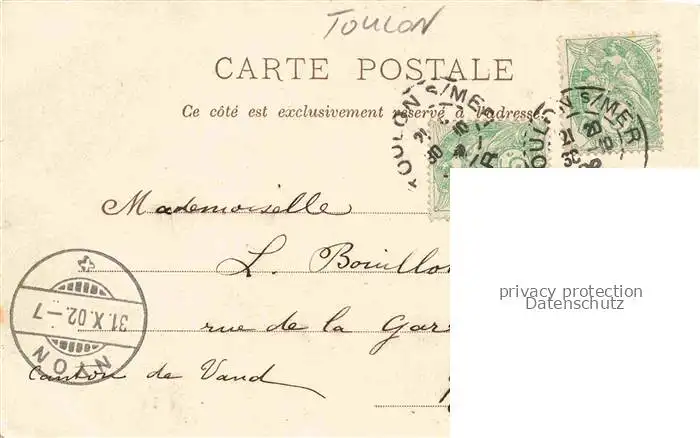 TOULON
CARTE POSTALE
Ce côté est exclusivement réservé à l'adresse.
TOULON S/MER
TOULON S/MER
Mademoiselle
L. Bouillon
privacy protection
Datenschutz
rue de la Gar
Canton de Vaud
NYON
31.X.02.-7